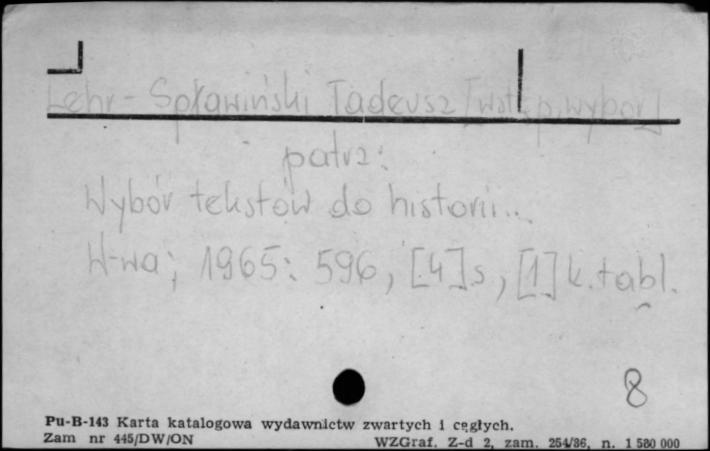 Lehr-Spławiński Tadeusz [wstęp, wybór]
patrz:
Wybór tekstów do historii...
W-wa; 1965: 596, [4] s, [1] k. tabl.
8
Pu-B-143 Karta katalogowa wydawnictw zwartych i cęgłych.
Zam nr 445/DW/ON WZGraf. Z-d 2, zam. 254/86, n. 1 580 000